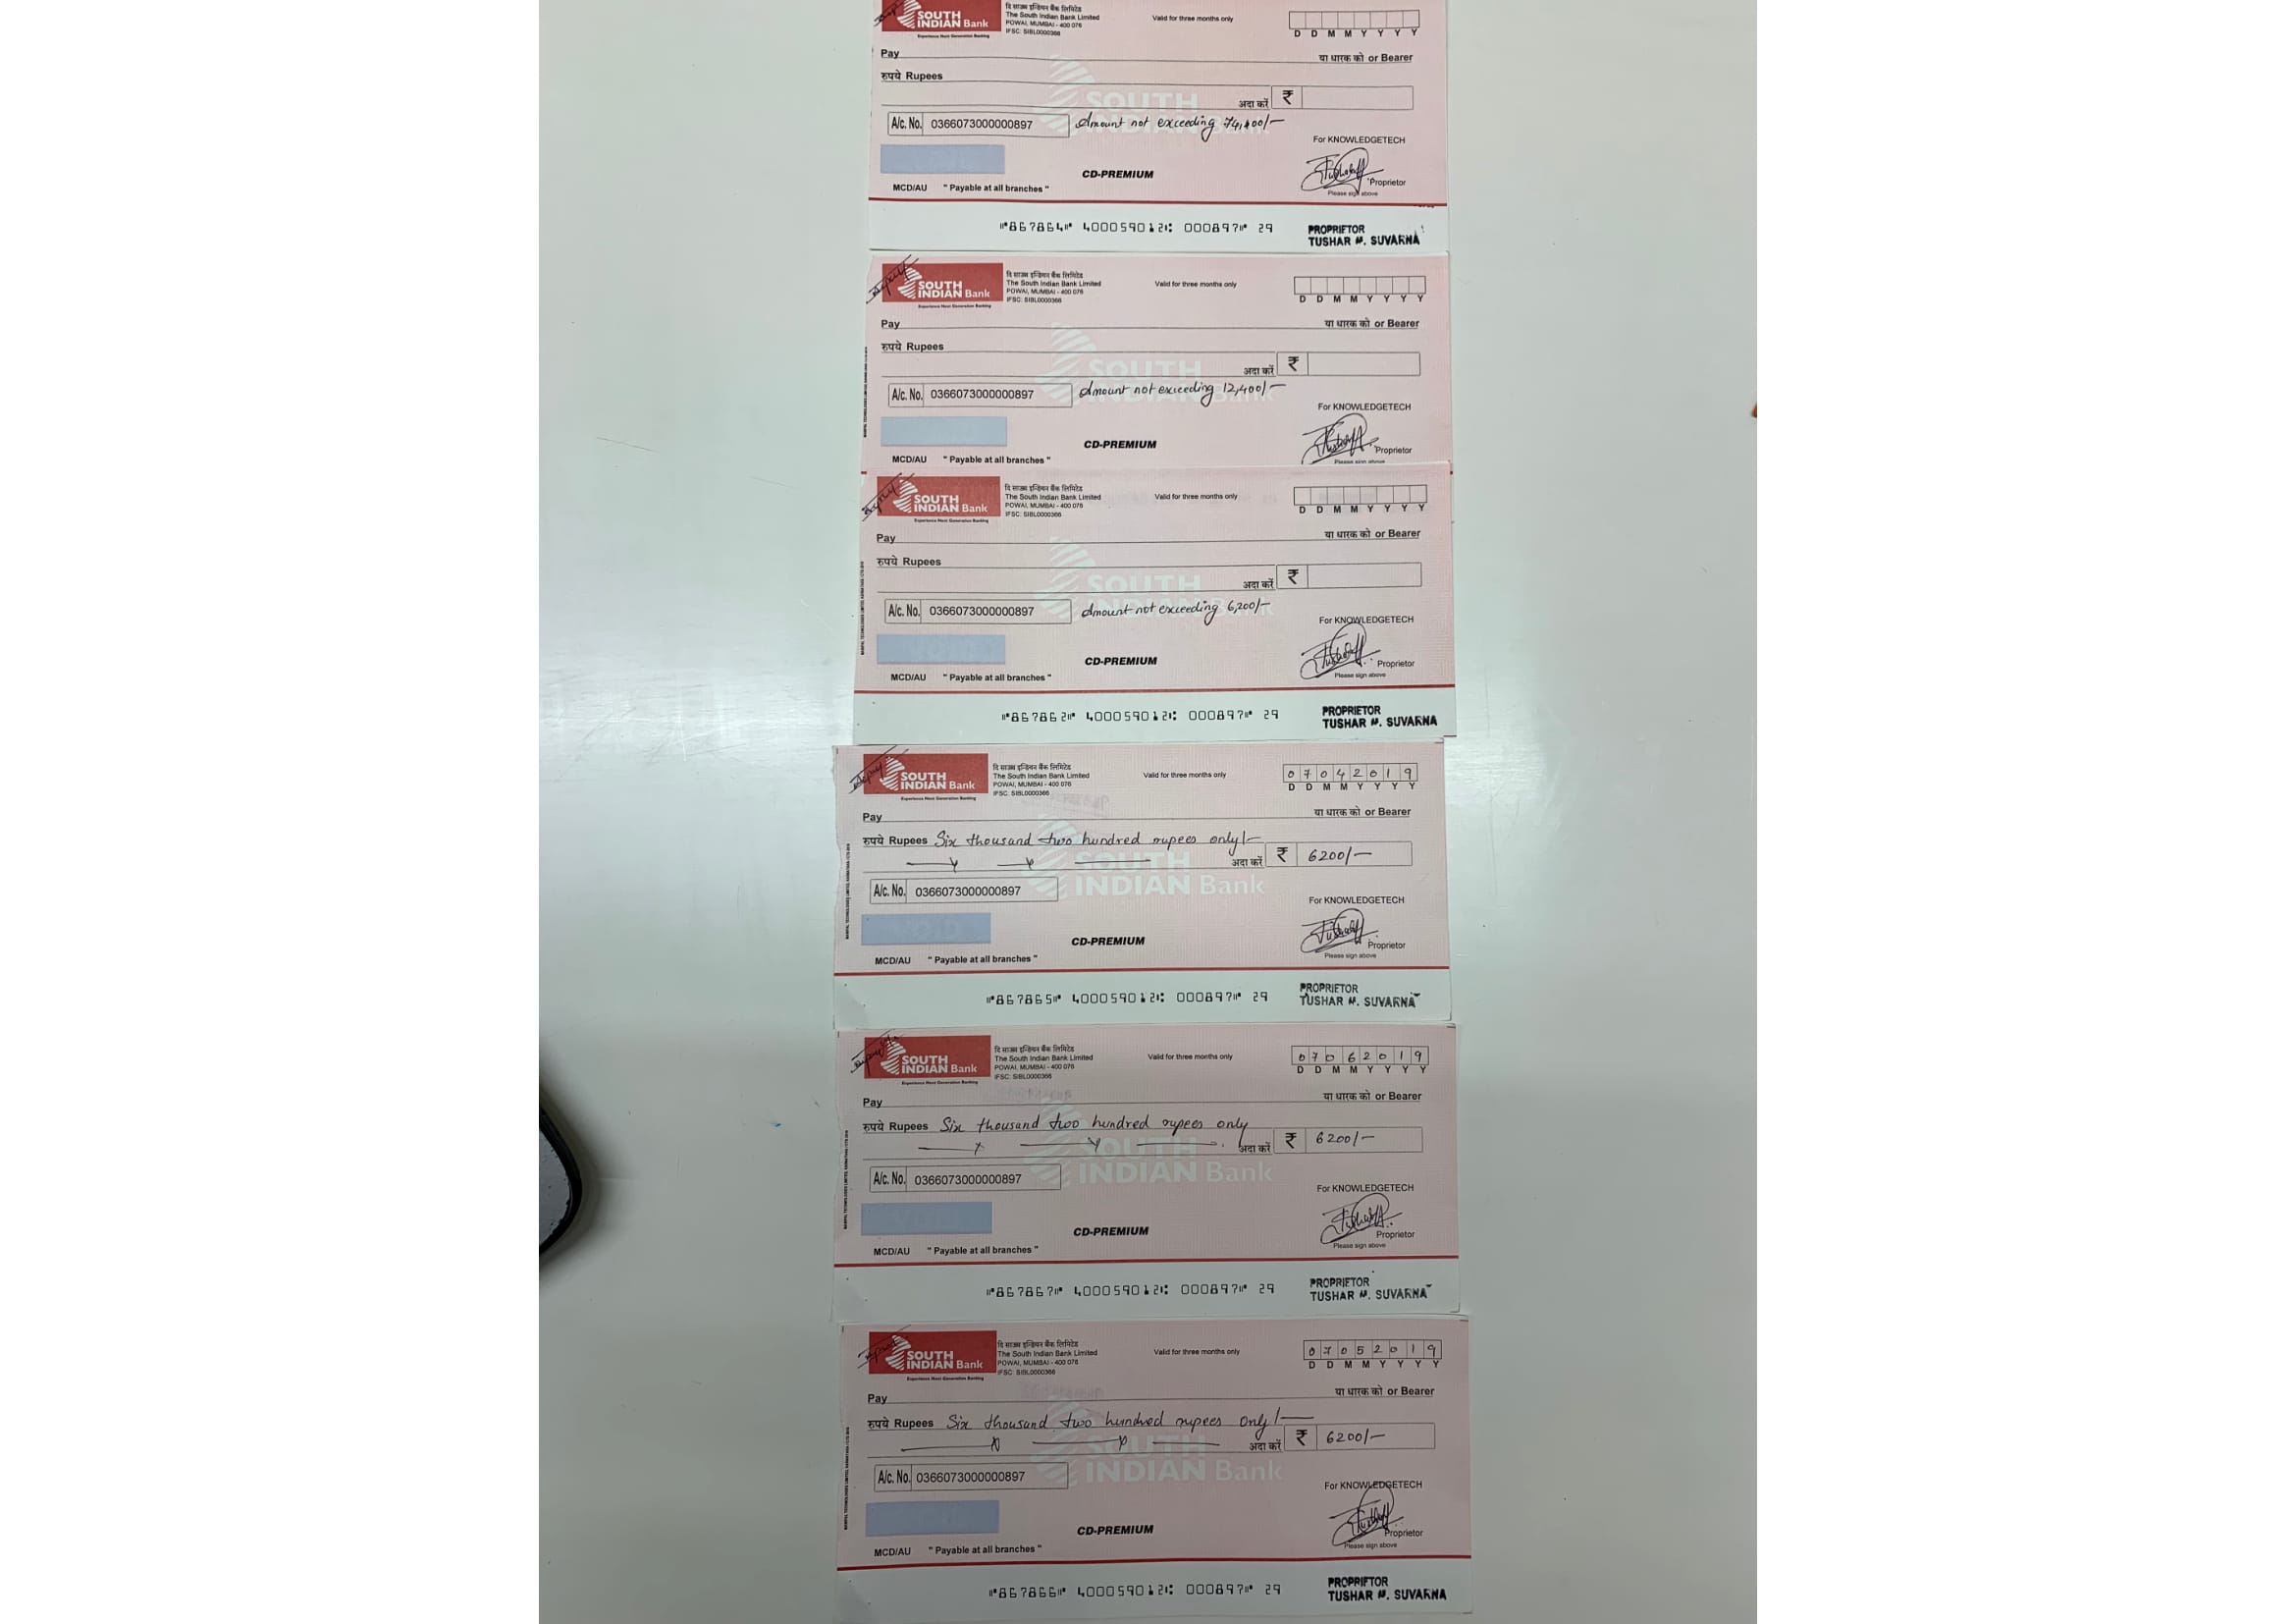 SOUTH
INDIAN Bank
Experience Next Generation Banking
दि साउथ इन्डियन बैंक लिमिटेड
The South Indian Bank Limited
POWAI, MUMBAI - 400 076
IFSC: SIBL0000366
Valid for three months only
D D M M Y Y Y Y
Pay
या धारक को or Bearer
रुपये Rupees
अदा करें ₹
A/c. No. 0366073000000897
Amount not exceeding
For KNOWLEDGETECH
CD-PREMIUM
Proprietor
Please sign above
MCD/AU " Payable at all branches "
⑈867864⑈ 400059012⑆ 000897⑈ 29
PROPRIETOR
TUSHAR M. SUVARNA
SOUTH
INDIAN Bank
Experience Next Generation Banking
दि साउथ इन्डियन बैंक लिमिटेड
The South Indian Bank Limited
POWAI, MUMBAI - 400 076
IFSC: SIBL0000366
Valid for three months only
D D M M Y Y Y Y
Pay
या धारक को or Bearer
रुपये Rupees
अदा करें ₹
A/c. No. 0366073000000897
Amount not exceeding 12,400/-
For KNOWLEDGETECH
CD-PREMIUM
Proprietor
Please sign above
MCD/AU " Payable at all branches "
SOUTH
INDIAN Bank
Experience Next Generation Banking
दि साउथ इन्डियन बैंक लिमिटेड
The South Indian Bank Limited
POWAI, MUMBAI - 400 076
IFSC: SIBL0000366
Valid for three months only
D D M M Y Y Y Y
Pay
या धारक को or Bearer
रुपये Rupees
अदा करें ₹
A/c. No. 0366073000000897
Amount not exceeding 6,200/-
For KNOWLEDGETECH
CD-PREMIUM
Proprietor
Please sign above
MCD/AU " Payable at all branches "
⑈867862⑈ 400059012⑆ 000897⑈ 29
PROPRIETOR
TUSHAR M. SUVARNA
SOUTH
INDIAN Bank
Experience Next Generation Banking
दि साउथ इन्डियन बैंक लिमिटेड
The South Indian Bank Limited
POWAI, MUMBAI - 400 076
IFSC: SIBL0000366
Valid for three months only
0 7 0 4 2 0 1 9
D D M M Y Y Y Y
Pay
या धारक को or Bearer
रुपये Rupees Six thousand two hundred rupees only/-
अदा करें ₹ 6200/-
A/c. No. 0366073000000897
For KNOWLEDGETECH
CD-PREMIUM
Proprietor
Please sign above
MCD/AU " Payable at all branches "
⑈867865⑈ 400059012⑆ 000897⑈ 29
PROPRIETOR
TUSHAR M. SUVARNA
SOUTH
INDIAN Bank
Experience Next Generation Banking
दि साउथ इन्डियन बैंक लिमिटेड
The South Indian Bank Limited
POWAI, MUMBAI - 400 076
IFSC: SIBL0000366
Valid for three months only
0 7 0 6 2 0 1 9
D D M M Y Y Y Y
Pay
या धारक को or Bearer
रुपये Rupees Six thousand two hundred rupees only
अदा करें ₹ 6200/-
A/c. No. 0366073000000897
For KNOWLEDGETECH
CD-PREMIUM
Proprietor
Please sign above
MCD/AU " Payable at all branches "
⑈867867⑈ 400059012⑆ 000897⑈ 29
PROPRIETOR
TUSHAR M. SUVARNA
SOUTH
INDIAN Bank
Experience Next Generation Banking
दि साउथ इन्डियन बैंक लिमिटेड
The South Indian Bank Limited
POWAI, MUMBAI - 400 076
IFSC: SIBL0000366
Valid for three months only
0 7 0 5 2 0 1 9
D D M M Y Y Y Y
Pay
या धारक को or Bearer
रुपये Rupees Six thousand two hundred rupees only/-
अदा करें ₹ 6200/-
A/c. No. 0366073000000897
For KNOWLEDGETECH
CD-PREMIUM
Proprietor
Please sign above
MCD/AU " Payable at all branches "
⑈867866⑈ 400059012⑆ 000897⑈ 29
PROPRIETOR
TUSHAR M. SUVARNA